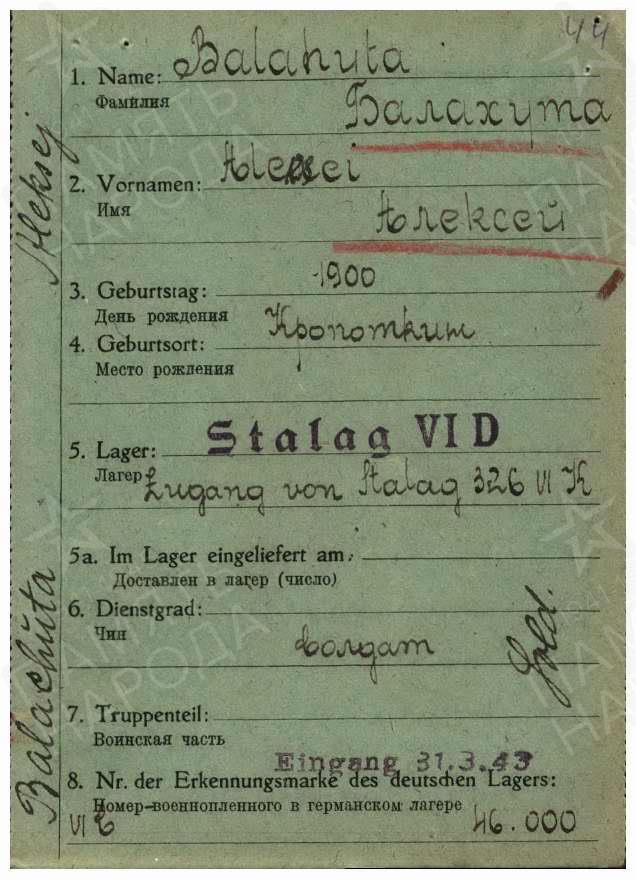 44
1. Name: Balahuta
Фамилия
Балахута
2. Vornamen: Aleksei
Имя
Алексей
3. Geburtstag: 1900
День рождения
4. Geburtsort: Кропоткин
Место рождения
5. Lager: Stalag VI D
Лагер Zugang von Stalag 326 VI K
5a. Im Lager eingeliefert am:
Доставлен в лагер (число)
6. Dienstgrad:
Чин
Солдат
Sold.
7. Truppenteil:
Воинская часть
Eingang 31.3.43
8. Nr. der Erkennungsmarke des deutschen Lagers:
Номер-военнопленного в германском лагере
46.000
Balachuta Aleksej
ПАМЯТЬ
НАРОДА